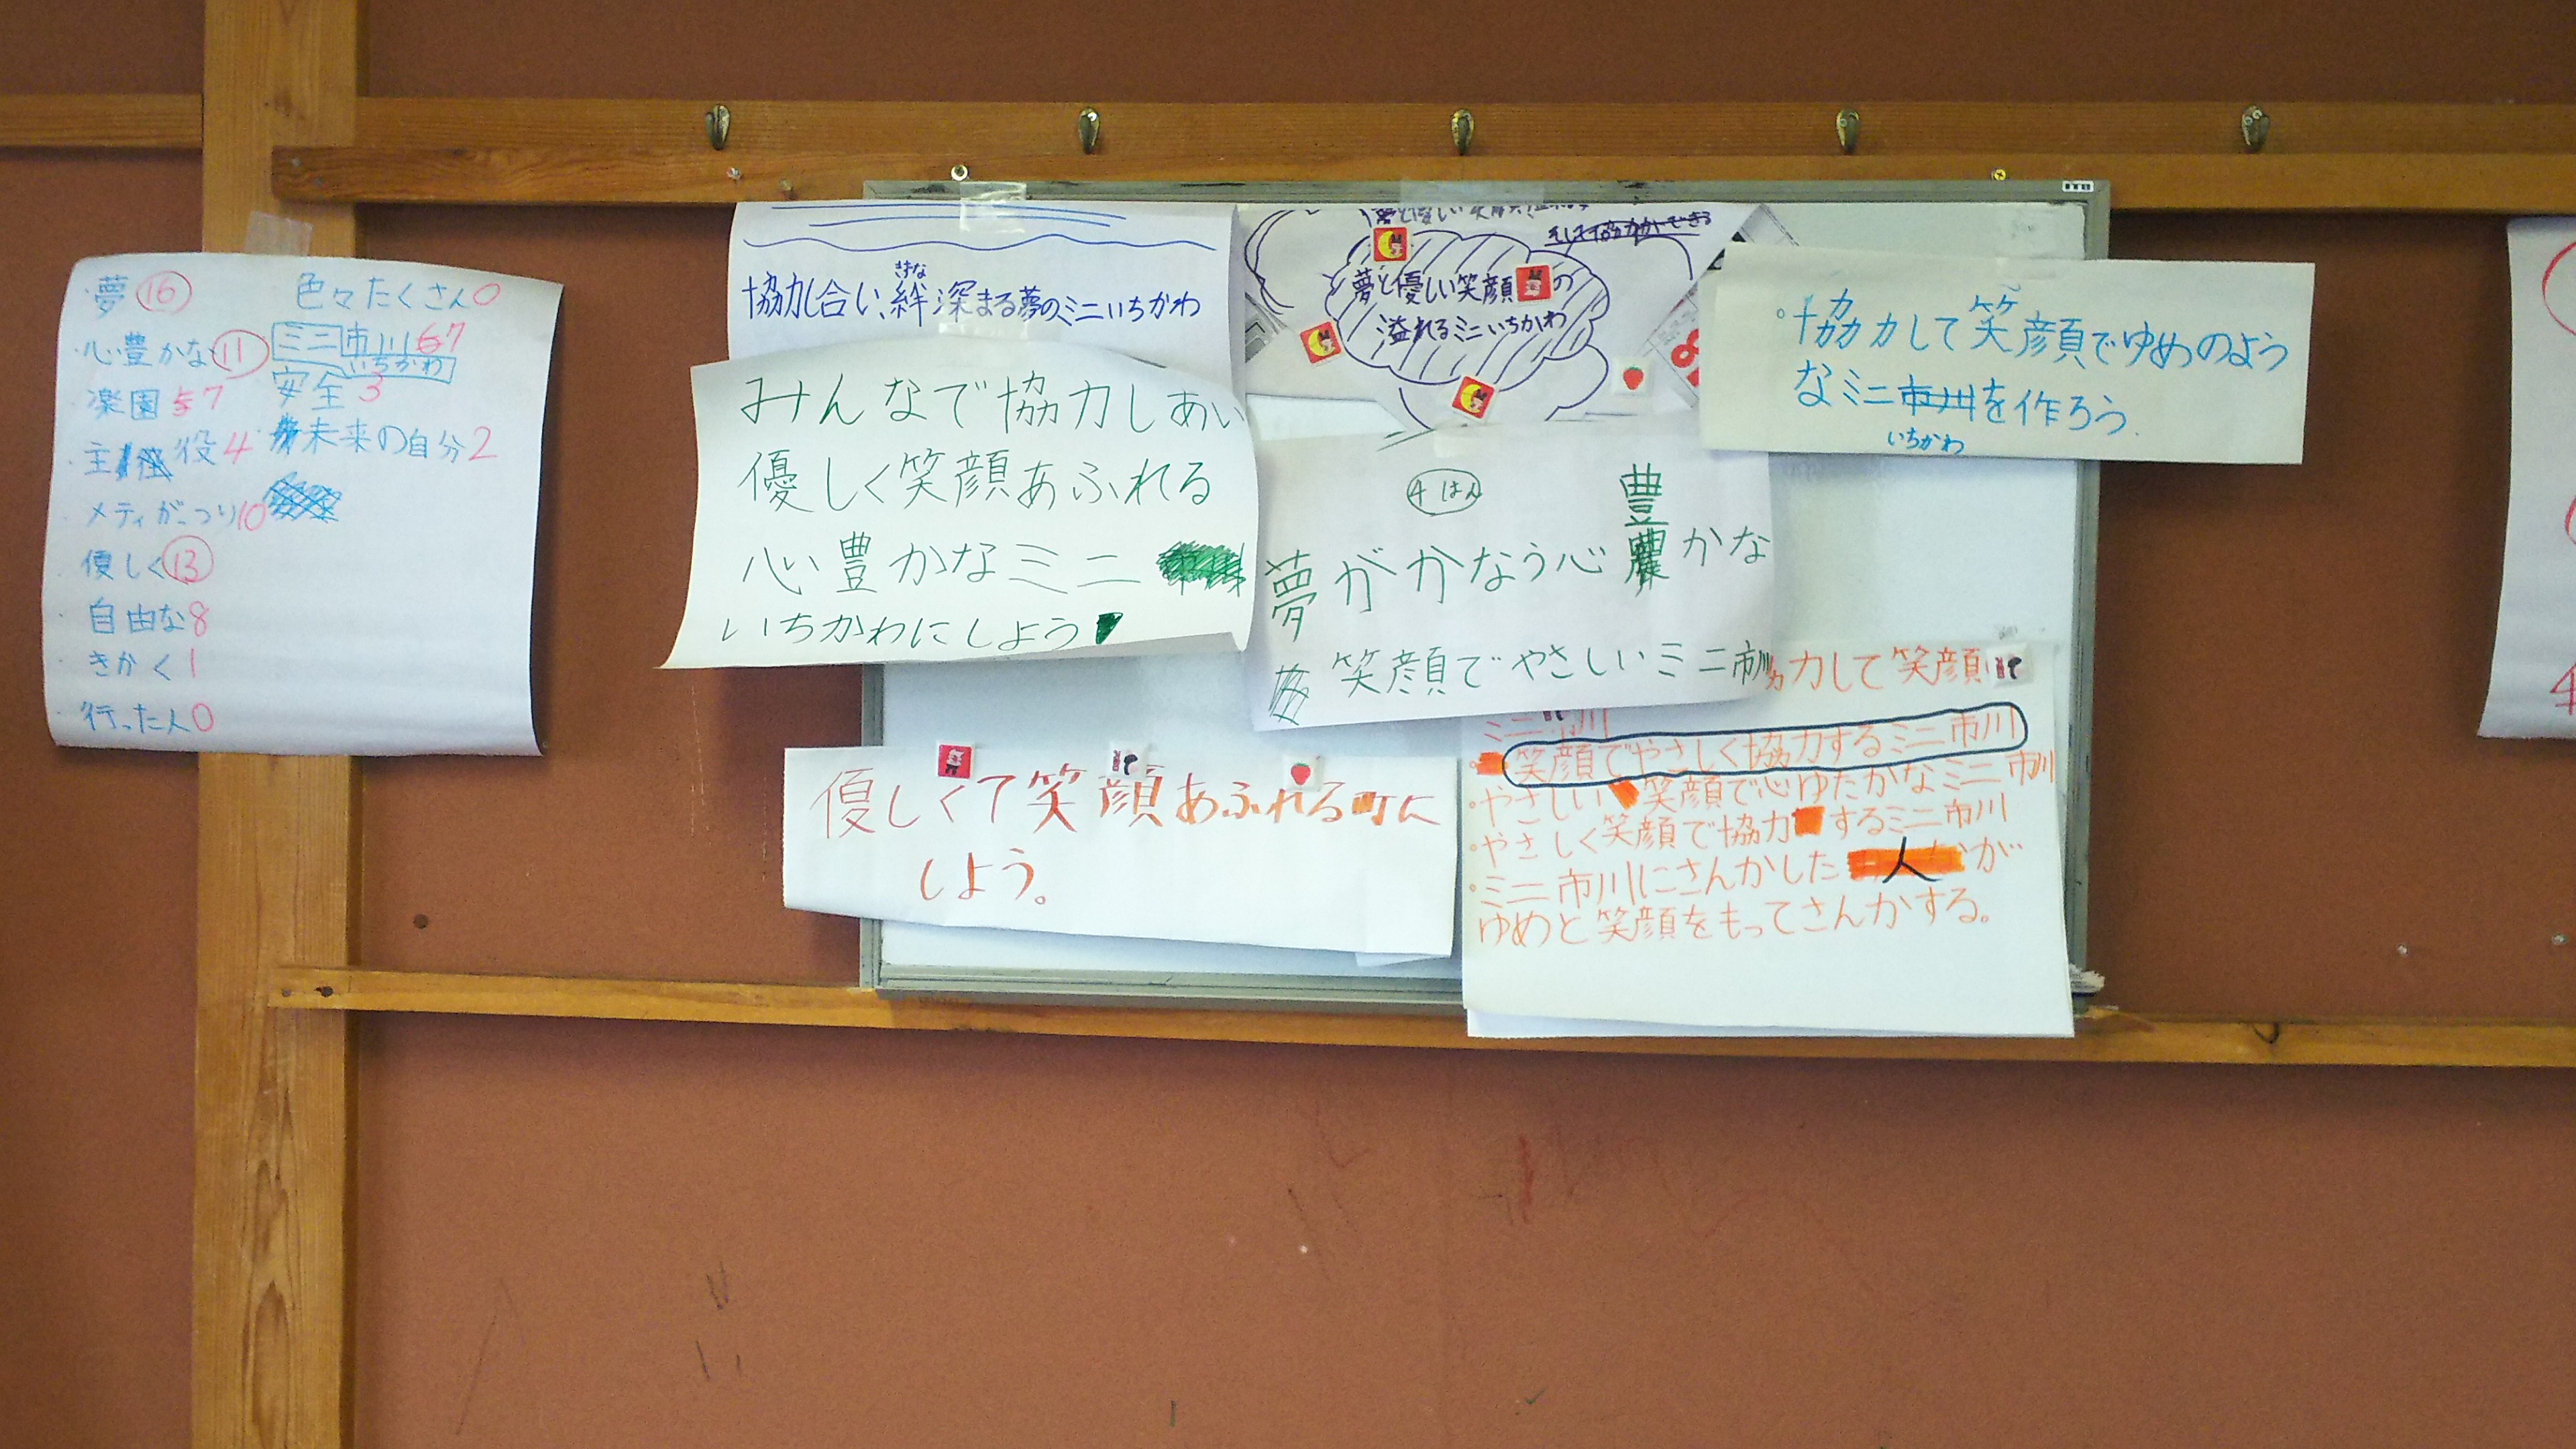 ・夢 16
・心豊かな 11
楽園 7
・主役 4
・メディがっつり 10
・優しく 13
・自由な 8
・きかく 1
・行った人 0
色々たくさん 0
ミニ市川 7
いちかわ
安全 3
未来の自分 2
きずな
協力し合い、絆深まる夢のミニいちかわ
みんなで協力しあい
優しく笑顔あふれる
心豊かなミニ
いちかわにしよう
そして協力ができる
夢と優しい笑顔の
溢れるミニいちかわ
4はん
豊
夢がかなう心かな
笑顔でやさしいミニ市川
。協力して笑顔でゆめのよう
なミニ市川を作ろう.
いちかわ
優しくて笑顔あふれる町に
しよう。
力して笑顔
ミニ市川
笑顔でやさしく協力するミニ市川
。やさしい笑顔で心ゆたかなミニ市川
。やさしく笑顔で協力するミニ市川
。ミニ市川にさんかした人が
ゆめと笑顔をもってさんかする。